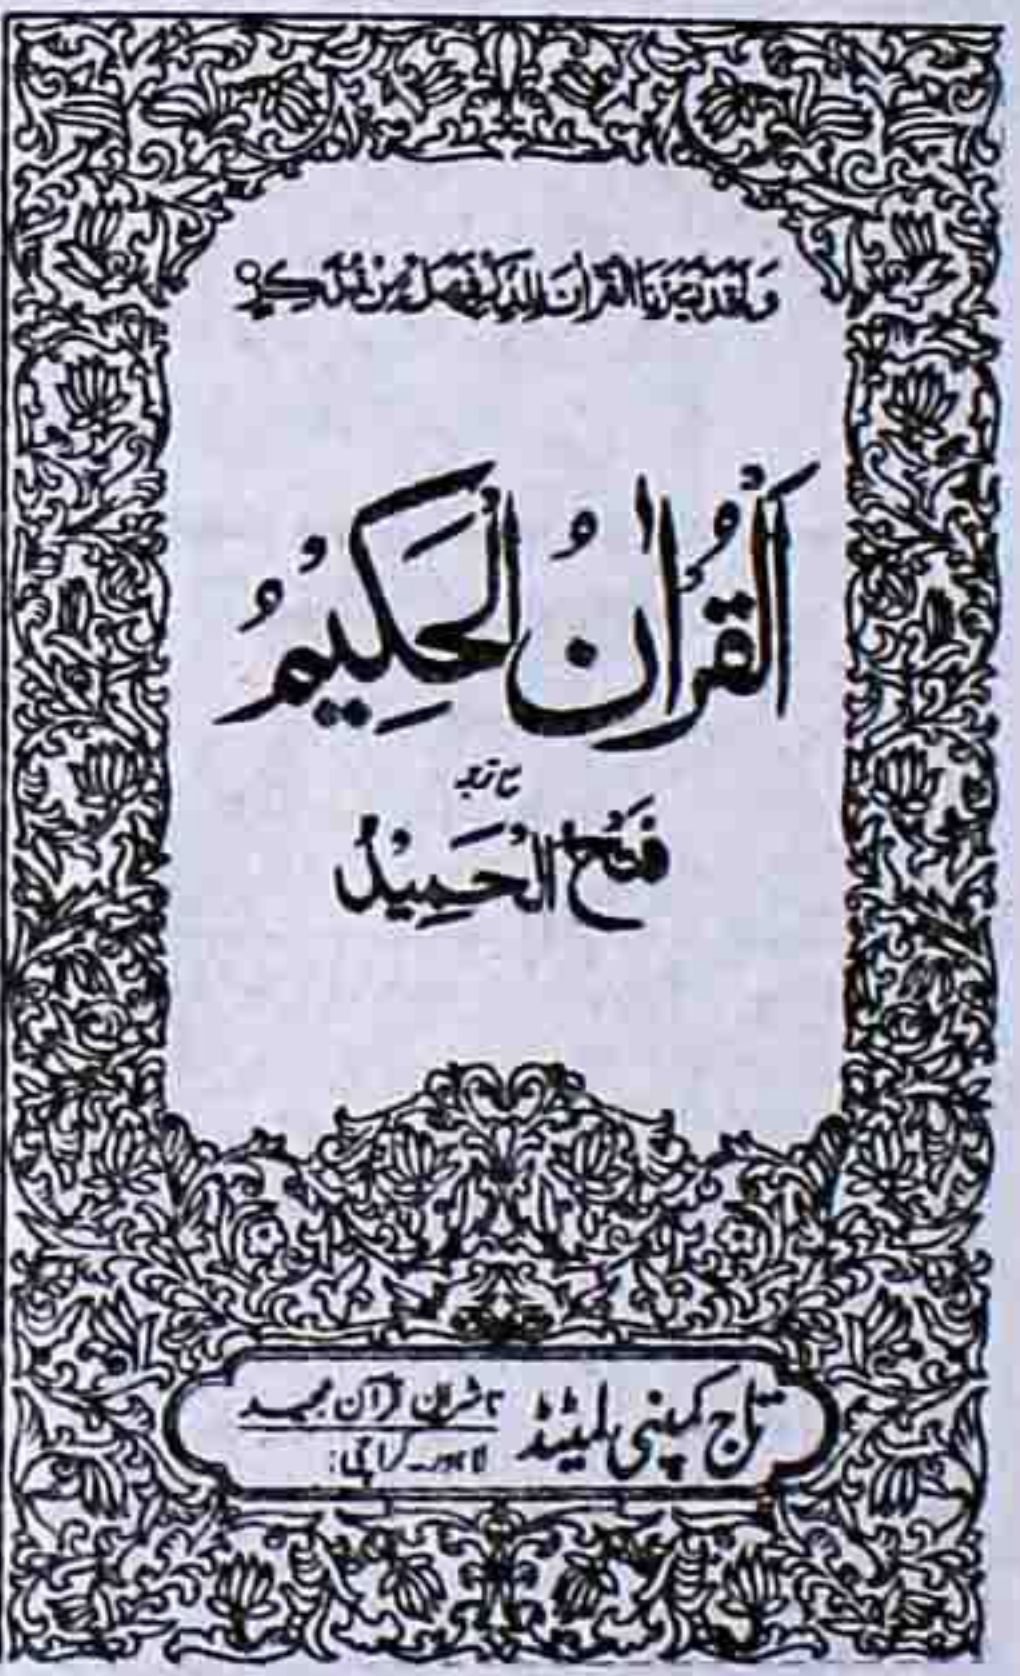 وَلَقَدْ يَسَّرْنَا الْقُرْاٰنَ لِلذِّكْرِ فَهَلْ مِنْ مُّدَّكِرٍ
اَلْقُرْاٰنُ الْحَكِيْمُ
مع ترجمہ
فَتْحُ الْحَمِيْدُ
تاج کمپنی لمیٹڈ
ناشران قرآن مجید
لاہور۔ کراچی: